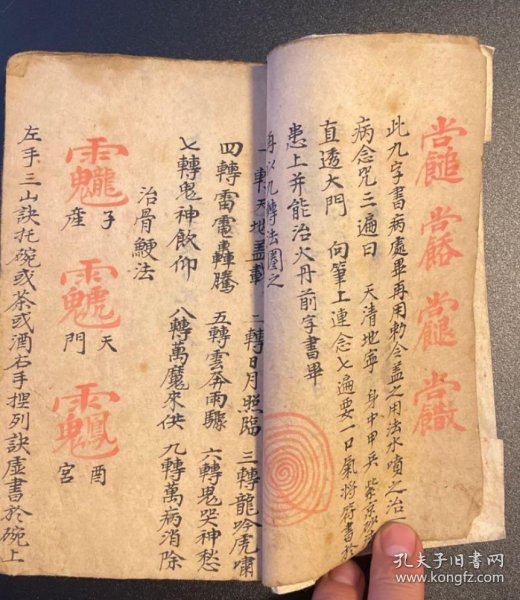 此九字書病處畢再用勅令盖之用法水噴之治一
病念咒三遍曰 天清地寧 身中甲兵 紫京
直透大門 向筆上連念七遍要一口氣將符書於
患上并能治火丹前字書畢
再以九轉法圈之
一轉天地盖載 二轉日月照臨 三轉龍吟虎嘯
四轉雷電轟騰 五轉雲奔雨驟 六轉鬼哭神愁
七轉鬼神欽仰 八轉萬魔來伏 九轉萬病消除
治骨鯁法
子 產 天 門 酉 宮
左手三山訣托碗或茶或酒右手捏列訣虛書於碗上
孔夫子旧书网
www.kongfz.com